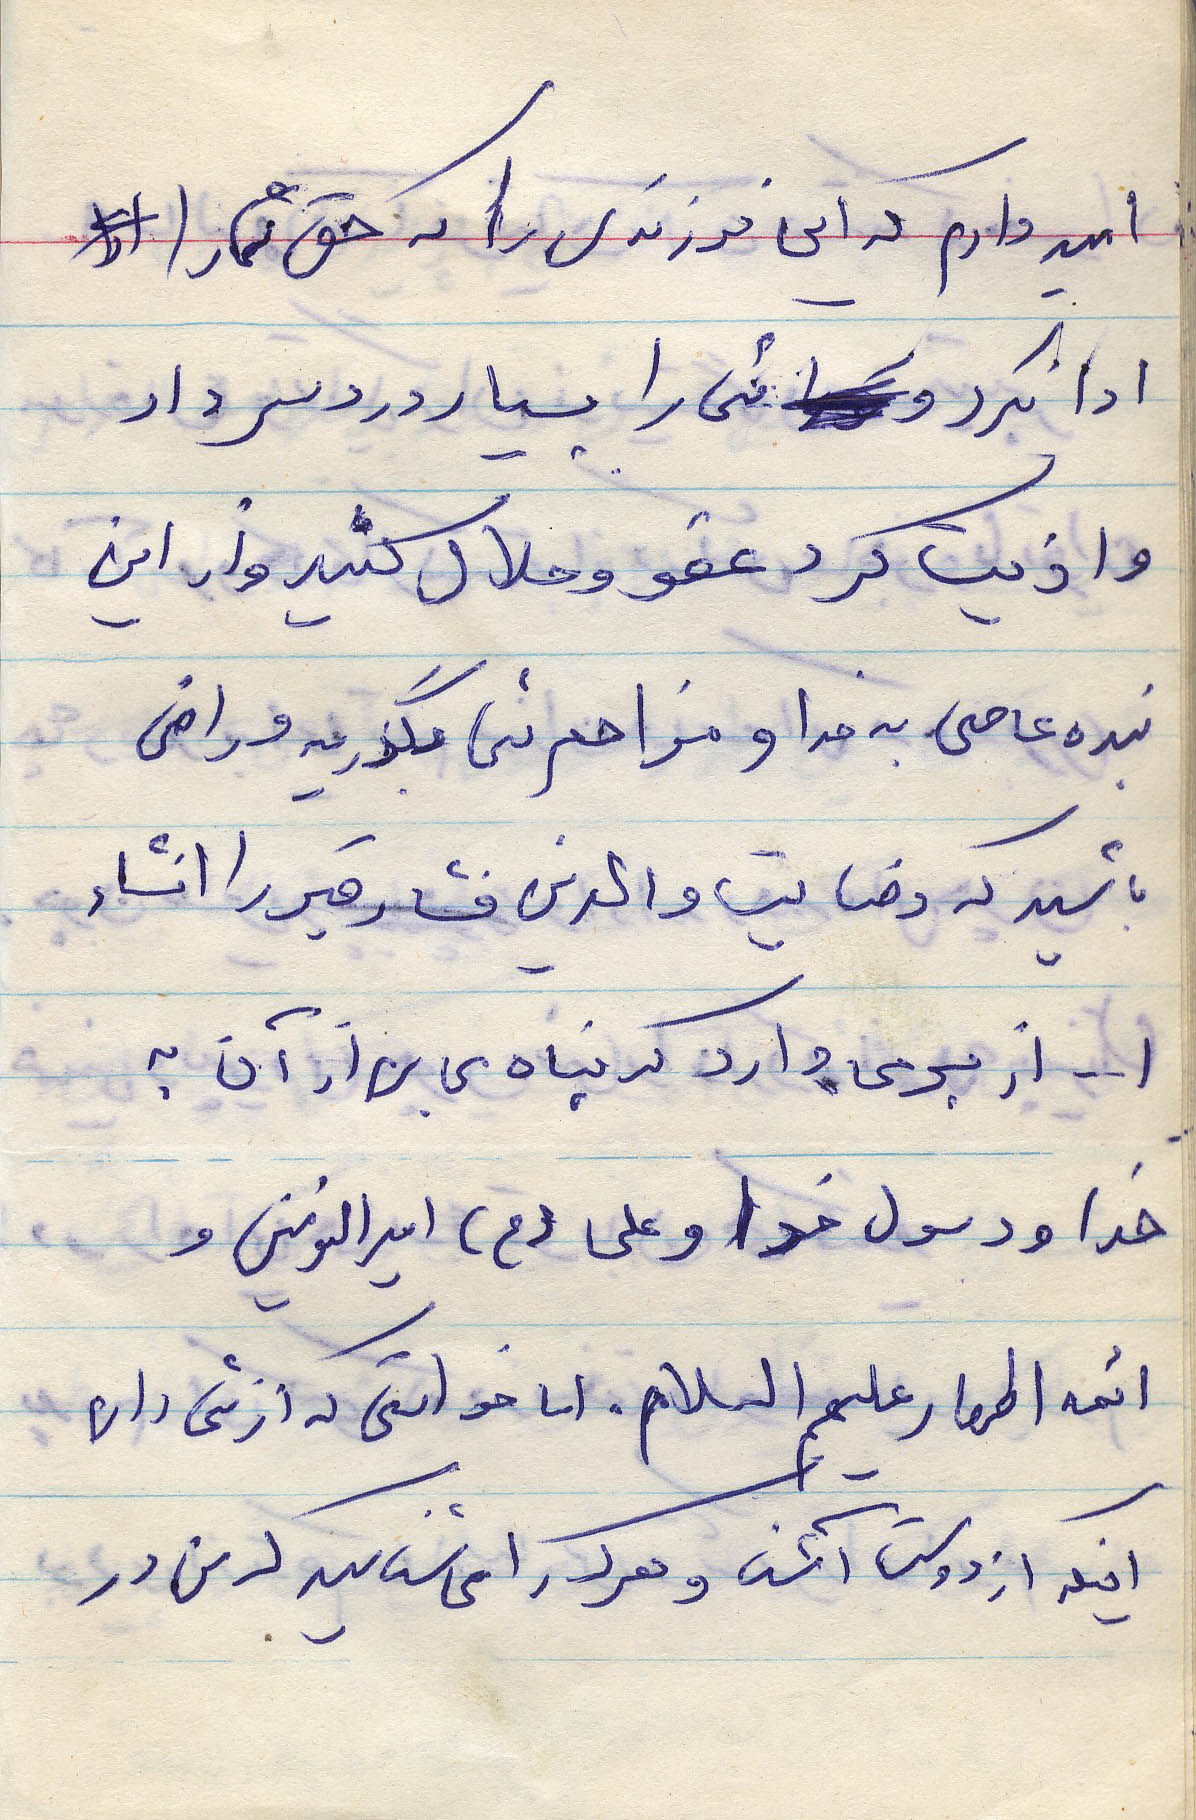 امیدوارم که این فرزندی را که حق شما را
ادا نکرد و شما را بسیار دردسر داد
و اذیت کرد عفو و حلال کنید و از این
بنده عاصی به خدا و مزاحم شما بگذرید و راضی
باشید که رضایت والدین فشار قبر را انشاء
ا... از بین می دارد که پناه می برم از آن به
خدا و رسول خدا و علی (ع) امیرالمونین و
ائمه اطهار علیهم السلام. اما خواهشی که از شما دارم
اینکه از دوست آشنا و هرکه را می شناسید که من در